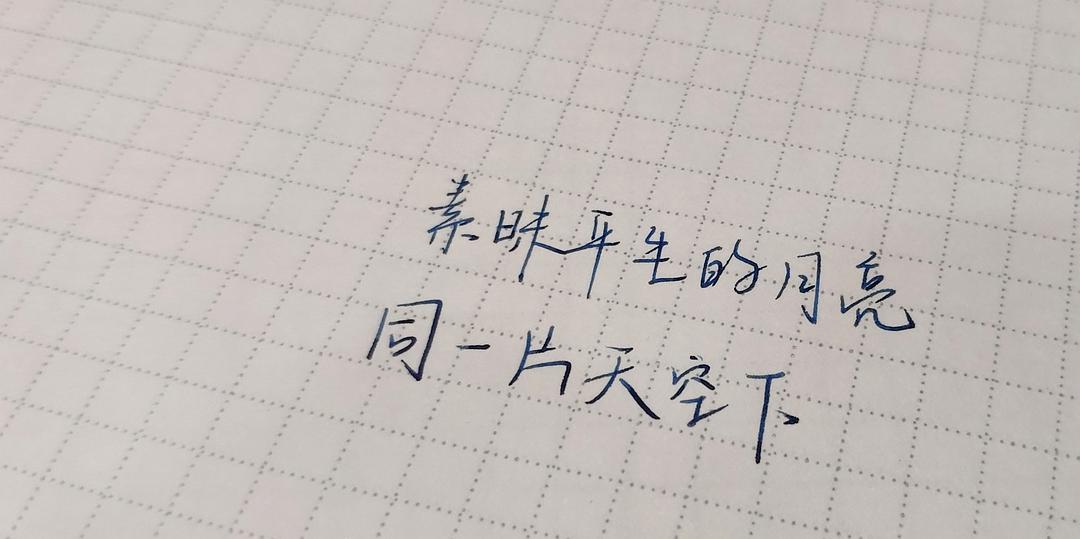 素昧平生的月亮
同一片天空下